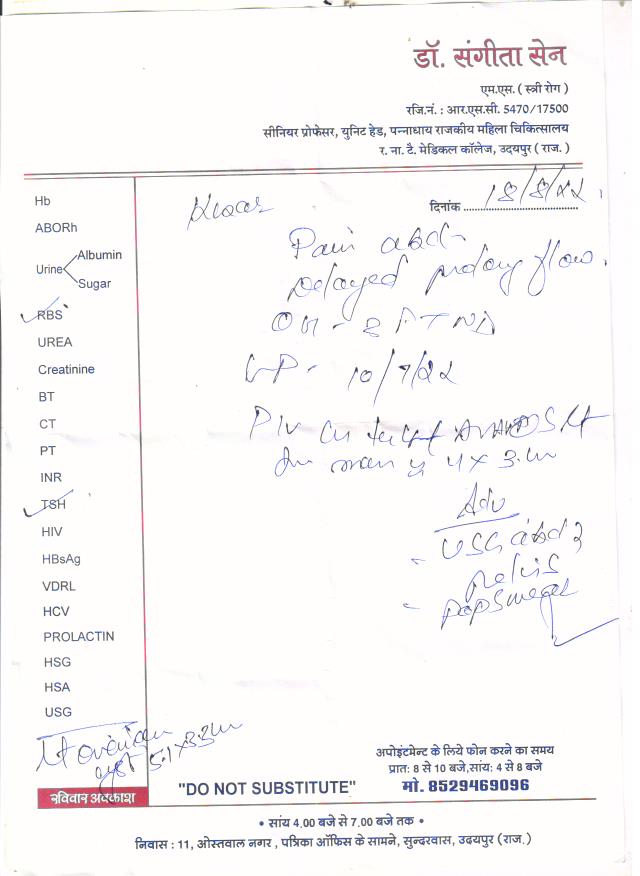 डॉ. संगीता सेन
एम.एस. ( स्त्री रोग )
रजि.नं. : आर.एस.सी. 5470/17500
सीनियर प्रोफेसर, युनिट हेड, पन्नाधाय राजकीय महिला चिकित्सालय
र. ना. टै. मेडिकल कॉलेज, उदयपुर ( राज. )
दिनांक 18/8/22
Hb
ABORh
Urine Albumin
Sugar
RBS
UREA
Creatinine
BT
CT
PT
INR
TSH
HIV
HBsAg
VDRL
HCV
PROLACTIN
HSG
HSA
USG
Pain abd
Delayed prolong flow.
- 2 FTND
- 10/7/22
P/V
4 x 3 cm
Adv
- USG abd &
pelvis
- Pap smear
Lt ovarian
cyst 5.1 x 3.3 cm
रविवार अवकाश
"DO NOT SUBSTITUTE"
अपोइंटमेन्ट के लिये फोन करने का समय
प्रातः 8 से 10 बजे,सांय: 4 से 8 बजे
मो. 8529469096
• सांय 4.00 बजे से 7.00 बजे तक •
निवास : 11, ओस्तवाल नगर , पत्रिका ऑफिस के सामने, सुन्दरवास, उदयपुर (राज.)